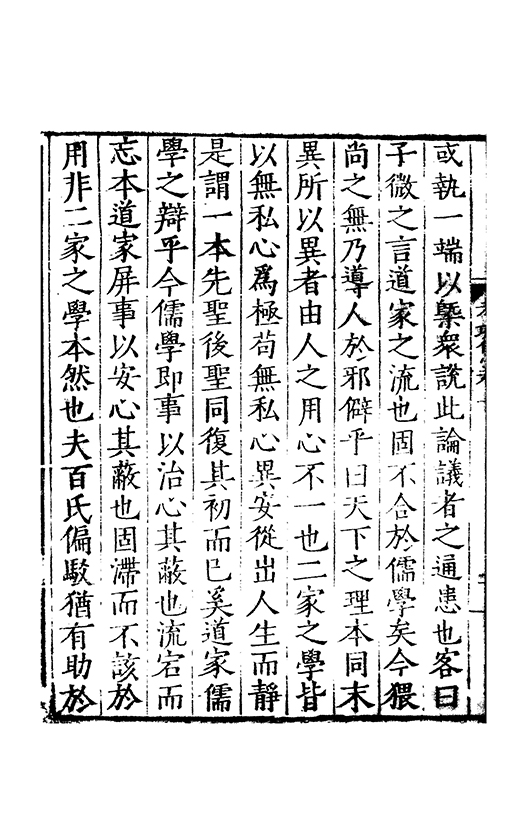 或執一端以槩衆說此論議者之通患也客曰
子微之言道家之流也固不合於儒學矣今猥
尚之無乃導人於邪僻乎曰天下之理本同末
異所以異者由人之用心不一也二家之學皆
以無私心爲極苟無私心異安從出人生而靜
是謂一本先聖後聖同復其初而已奚道家儒
學之辯乎今儒學即事以治心其蔽也流宕而
忘本道家屏事以安心其蔽也固滯而不該於
用非二家之學本然也夫百氏偏駁猶有助於